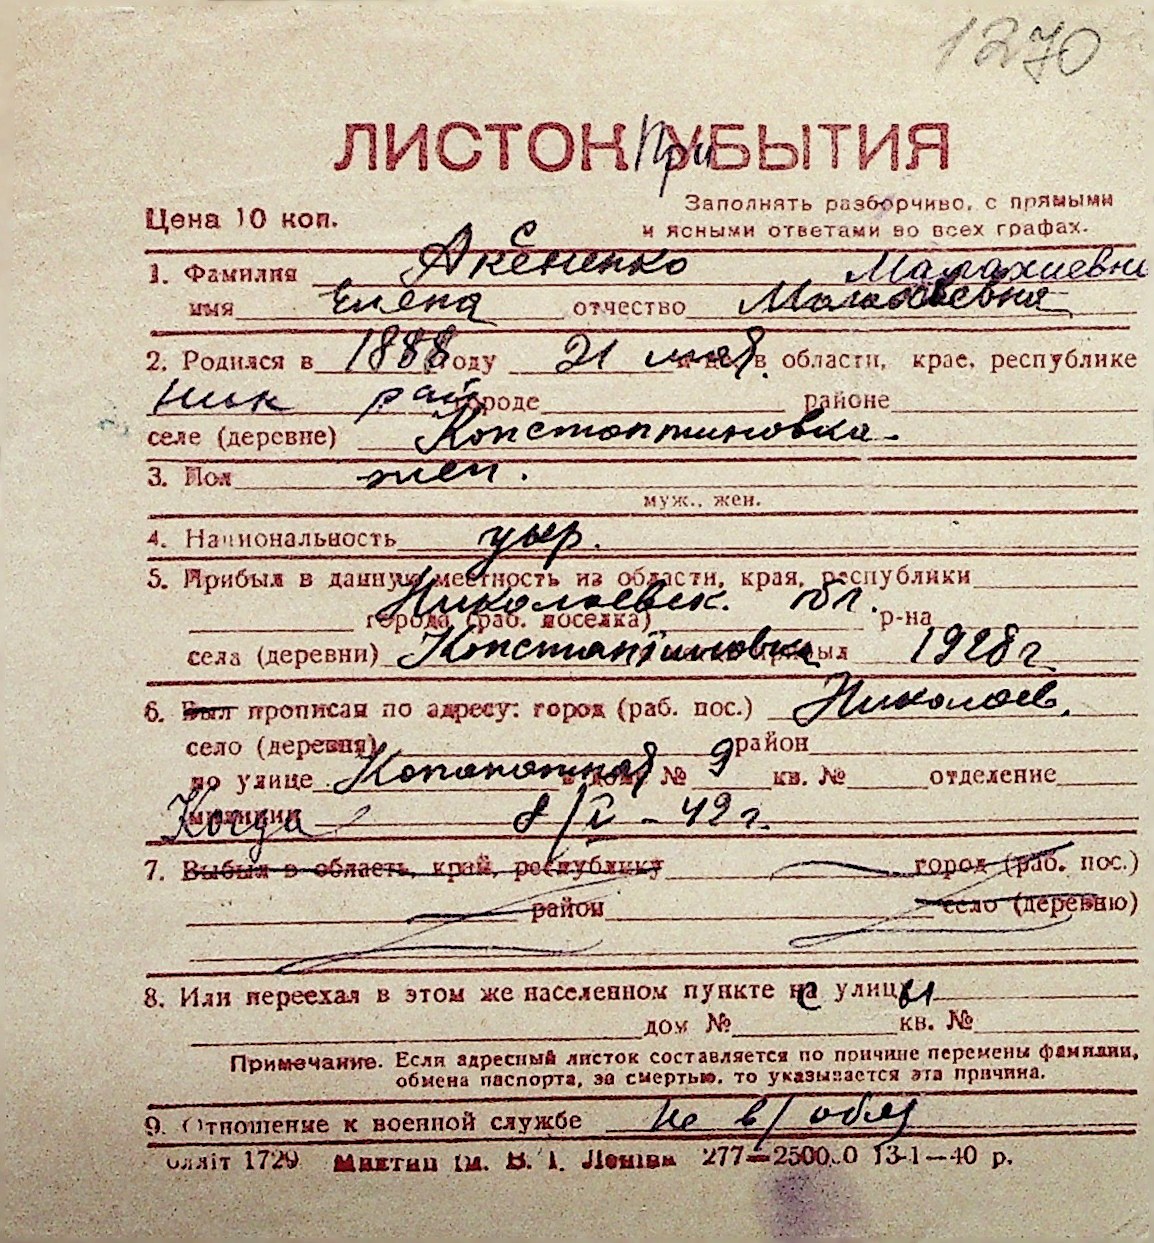 1270
ЛИСТОК При УБЫТИЯ
Цена 10 коп.
Заполнять разборчиво, с прямыми
и ясными ответами во всех графах.
1. Фамилия Аксененко Малахиевна
имя Елена отчество
2. Родился в 1888 году 21 мая м-це, в области, крае, республике
Ник рай городе районе
селе (деревне) Констонтиновка.
3. Пол жен.
муж., жен.
4. Национальность укр.
5. Прибыл в данную местность из области, края, республики
Николаевск. обл.
города (раб. поселка) р-на
села (деревни) Константиновка прибыл 1928 г
6. Был прописан по адресу: город (раб. пос.) Николаев,
село (деревня) район
по улице в дому № 9 кв. № отделение
милиции Когда 8/IV - 42 г.
7. Выбыл в область, край, республику город (раб. пос.)
район село (деревню)
8. Или переехал в этом же населенном пункте с улицы
дом № кв. №
Примечание. Если адресный листок составляется по причине перемены фамилии,
обмена паспорта, за смертью, то указывается эта причина.
9. Отношение к военной службе не в/обяз
Оллiт 1729 Миктип iм. В. I. Ленiна 277—2500.0 13-1—40 р.